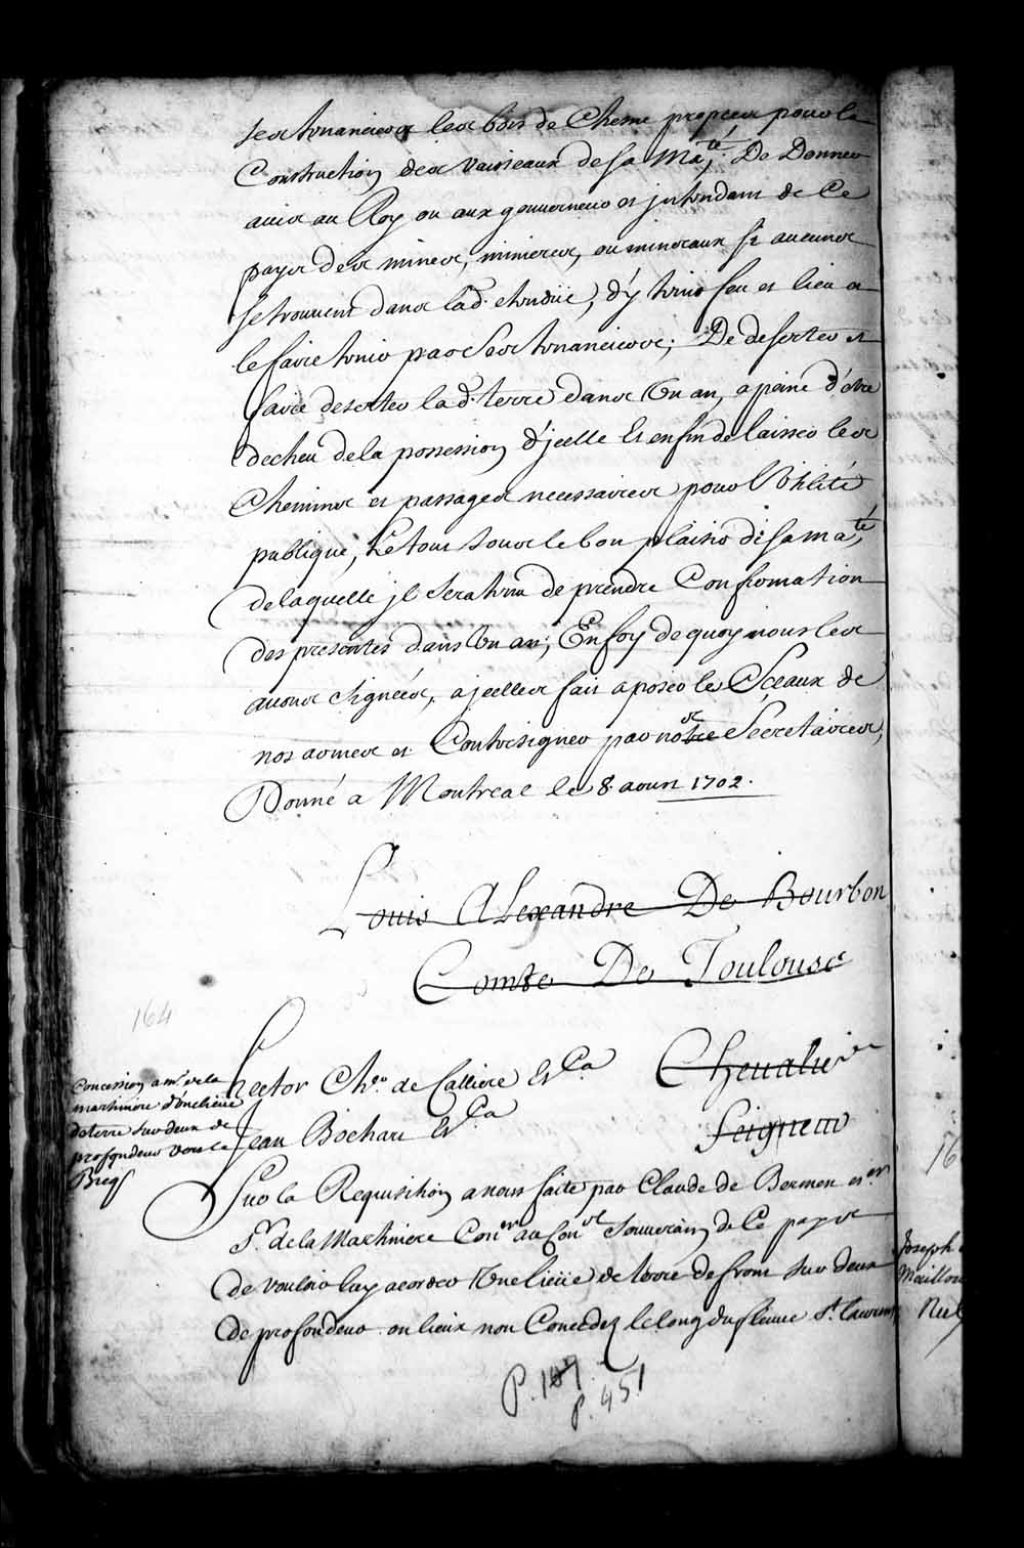 ses tenanciers les bois de Chesne propres pour la
Construction des vaisseaux de sa Maté; De Donner
avis au Roy ou aux gouverneur et jntendant de Ce
pays des mines, minieres, ou mineraux si aucunes
se trouvent dans lad. etendüe, d'y tenir feu et lieu et
le faire tenir par Ses tenanciers; De deserter et
faire deserter lad. terre dans Un an, a peine d'etre
decheu de la possession d'jcelle Et enfin de laisser les
Chemins et passages necessaires pour l'Utilité
publique, Le tout sous le bon plaisir de sa maté,
de laquelle jl sera tenu de prendre Confirmation
des presentes dans Un an; En foy de quoy nous les
avons Signées, a jcelles fait aposer les Sceaux de
nos armes et Contresigner par nos Secretaires,
Donné a Montreal le 8. avril 1702.
Louis Alexandre De Bourbon
Comte De Toulouse
164
Concession a mr. de la
martiniere d'une lieüe
de terre sur deux de
profondeur vers le
Bicq
hector Cher. de Calliere Et Ca
Chevalier
Jean Bochart Et Ca
Seigneur
Sur la Requisition a nous faite par Claude de Bermen er
Sr. de la Martiniere Coner au Conel Souverain de Ce pays
de vouloir luy acorder Une lieüe de terre de front sur deux
de profondeur en lieux non Concedez le long du fleuve St. Laurent
P. 107
P. 451
16
Joseph